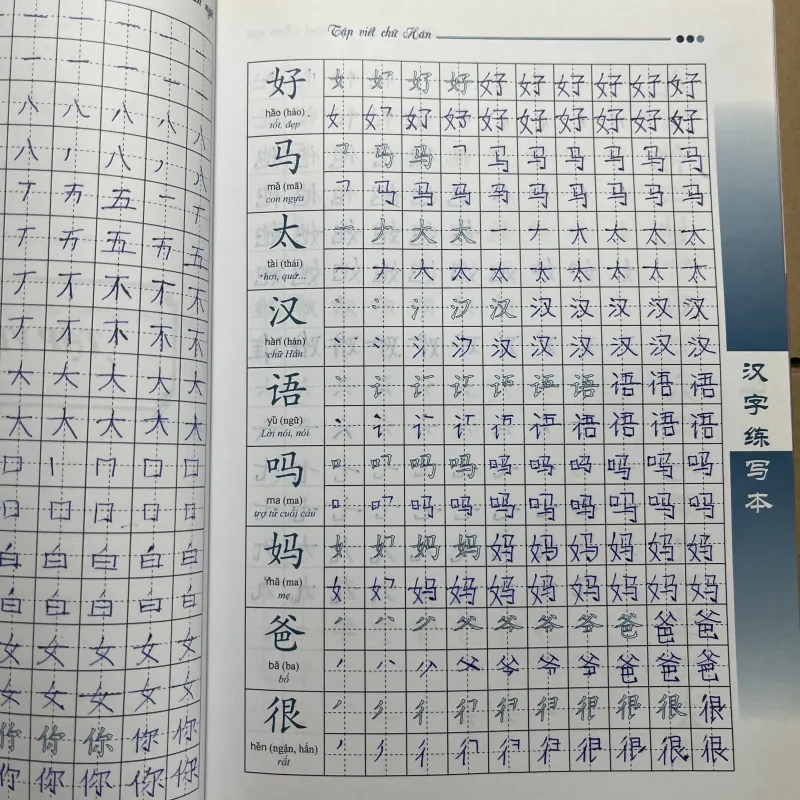 八 八 八 八
八 八 八
五 五
五 五 五
不 不 不
不 不 不
大 大 大 太 太
大 大 大 太 太
口 口 口
口 口 口 口
白 白 白 白 白
白 白 白 白 白
女 女 女 女 女
女 女 女 女 女
你 你 你 你 你
你 你 你 你 你
Tập viết chữ Hán
好 女 好 好 好 好 好 好 好 好
hǎo (hảo)
tốt, đẹp
女 好 好 好 好 好 好 好 好
马 马 马 马 马 马 马 马 马
mǎ (mã)
con ngựa
马 马 马 马 马 马 马 马 马
太 一 ナ 大 太 一 ナ 大 太 太 太
tài (thái)
hơi, quá...
一 ナ 大 太 太 太 太 太 太 太
汉 汉 汉 汉 汉 汉 汉
hàn (hán)
chữ Hán
汉 汉 汉 汉 汉 汉 汉
语 语 语 语 语
yǔ (ngữ)
Lời nói, nói
语 语 语 语 语
吗 口 吗 吗 吗 吗 吗 吗 吗 吗
ma (ma)
trợ từ cuối câu
口 吗 吗 吗 吗 吗 吗 吗 吗
妈 女 妈 妈 妈 妈 妈 妈 妈 妈
mā (ma)
mẹ
女 妈 妈 妈 妈 妈 妈 妈 妈
爸 爸 爸 爸
bā (ba)
bố
爸 爸 爸
很 很 很 很
hěn (ngận, hẩn)
rất
很 很 很 很
汉字练写本